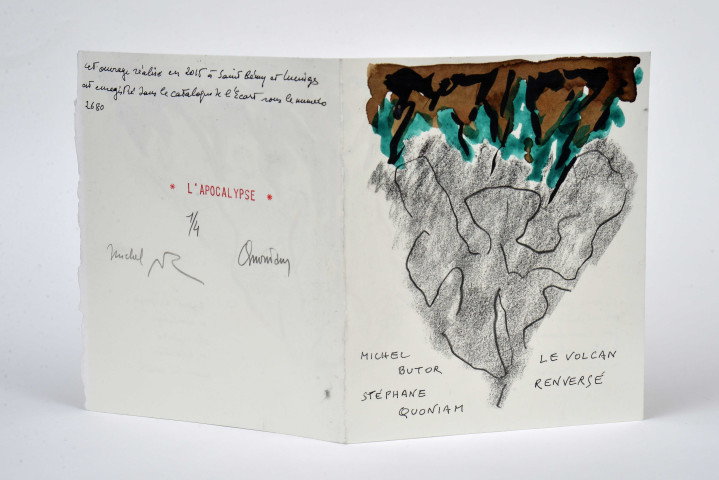 cet ouvrage réalisé en 2015 à Saint Rémy et Lucinges
est enregistré dans le catalogue de l'Écart sous le numéro
2680
* L'APOCALYPSE *
1/4
Michel
Quoniam
MICHEL
BUTOR
STÉPHANE
QUONIAM
LE VOLCAN
RENVERSÉ